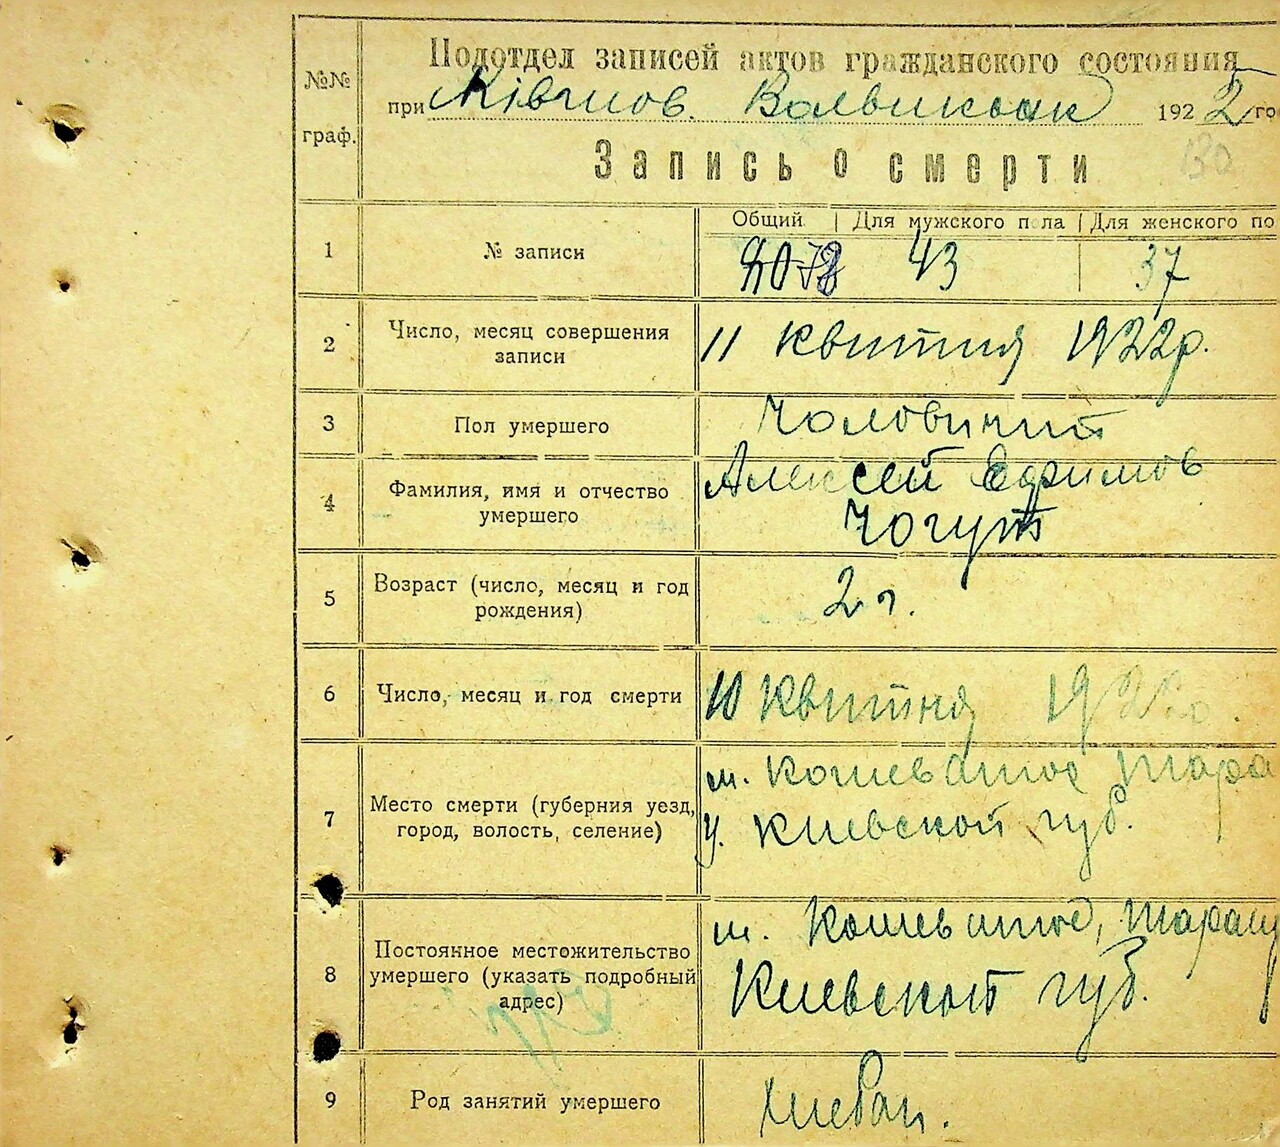 №№ граф.
Подотдел записей актов гражданского состояния
при Ківшов. Волвиконк 1922 го
130
Запись о смерти
Общий | Для мужского пола | Для женского по
1 № записи 43 37
2 Число, месяц совершения записи 11 квітня 1922р.
3 Пол умершего Чоловичий
4 Фамилия, имя и отчество умершего Алексей Ефимов
Чогут
5 Возраст (число, месяц и год рождения) 2 г.
6 Число, месяц и год смерти 10 Квітня 1922р.
7 Место смерти (губерния уезд, город, волость, селение) м. Кошеватое Тара
у. Киевской губ.
8 Постоянное местожительство умершего (указать подробный адрес) м. Кошеватое, Таращ
Киевской губ.
9 Род занятий умершего